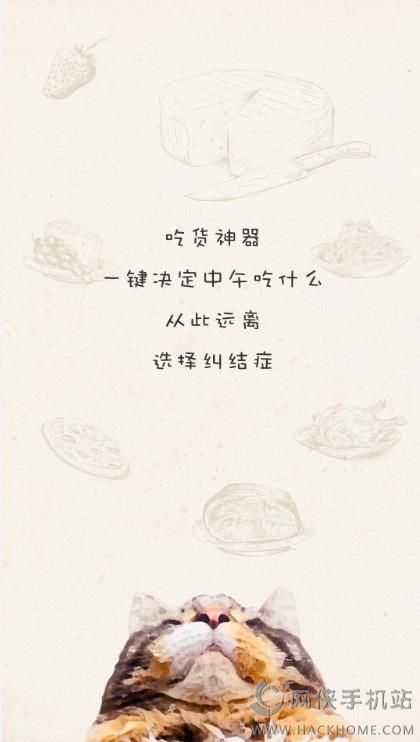 吃货神器
一键决定中午吃什么
从此远离
选择纠结症
网侠手机站
WWW.HACKHOME.COM